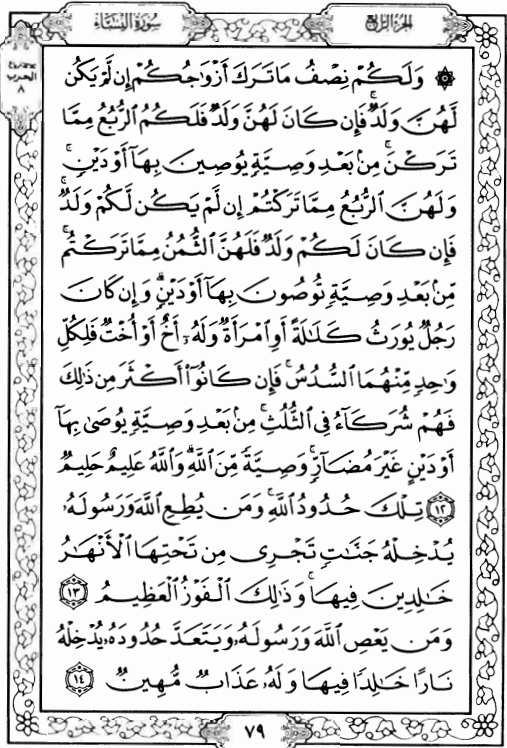 سُورَةُ النِّسَاءِ
الجُزْءُ الرَّابِعُ
الحزب
٨
۞ وَلَكُمْ نِصْفُ مَا تَرَكَ أَزْوَٰجُكُمْ إِن لَّمْ يَكُن
لَّهُنَّ وَلَدٌ ۚ فَإِن كَانَ لَهُنَّ وَلَدٌ فَلَكُمُ الرُّبُعُ مِمَّا
تَرَكْنَ ۚ مِنۢ بَعْدِ وَصِيَّةٍ يُوصِينَ بِهَآ أَوْ دَيْنٍ ۚ
وَلَهُنَّ الرُّبُعُ مِمَّا تَرَكْتُمْ إِن لَّمْ يَكُن لَّكُمْ وَلَدٌ ۚ
فَإِن كَانَ لَكُمْ وَلَدٌ فَلَهُنَّ الثُّمُنُ مِمَّا تَرَكْتُم ۚ
مِّنۢ بَعْدِ وَصِيَّةٍ تُوصُونَ بِهَآ أَوْ دَيْنٍ ۗ وَإِن كَانَ
رَجُلٌ يُورَثُ كَلَٰلَةً أَوِ امْرَأَةٌ وَلَهُۥٓ أَخٌ أَوْ أُخْتٌ فَلِكُلِّ
وَٰحِدٍ مِّنْهُمَا السُّدُسُ ۚ فَإِن كَانُوٓا۟ أَكْثَرَ مِن ذَٰلِكَ
فَهُمْ شُرَكَآءُ فِى الثُّلُثِ ۚ مِنۢ بَعْدِ وَصِيَّةٍ يُوصَىٰ بِهَآ
أَوْ دَيْنٍ غَيْرَ مُضَآرٍّ ۚ وَصِيَّةً مِّنَ اللَّهِ ۗ وَاللَّهُ عَلِيمٌ حَلِيمٌ
١٢ تِلْكَ حُدُودُ اللَّهِ ۚ وَمَن يُطِعِ اللَّهَ وَرَسُولَهُۥ
يُدْخِلْهُ جَنَّٰتٍ تَجْرِى مِن تَحْتِهَا الْأَنْهَٰرُ
خَٰلِدِينَ فِيهَا ۚ وَذَٰلِكَ الْفَوْزُ الْعَظِيمُ ١٣
وَمَن يَعْصِ اللَّهَ وَرَسُولَهُۥ وَيَتَعَدَّ حُدُودَهُۥ يُدْخِلْهُ
نَارًا خَٰلِدًا فِيهَا وَلَهُۥ عَذَابٌ مُّهِينٌ ١٤
٧٩